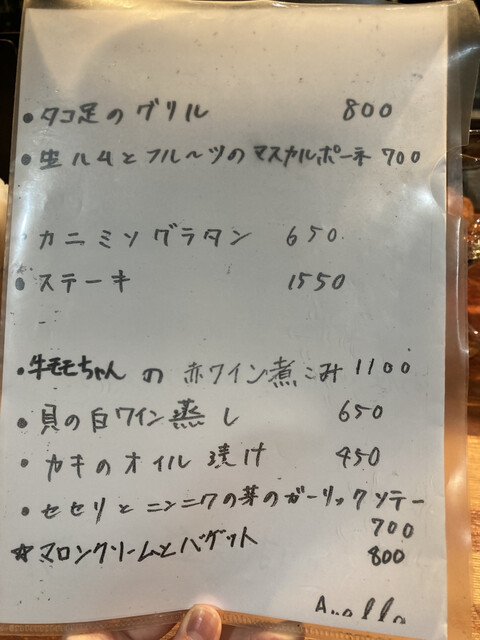 ・タコ足のグリル 800
・生ハムとフルーツのマスカルポーネ 700
カニミソグラタン 650
・ステーキ 1550
・牛モモちゃんの赤ワイン煮こみ 1100
・貝の白ワイン蒸し 650
・カキのオイル漬け 450
・セセリとニンニクの芽のガーリックソテー
700
☆マロンクリームとバゲット 800